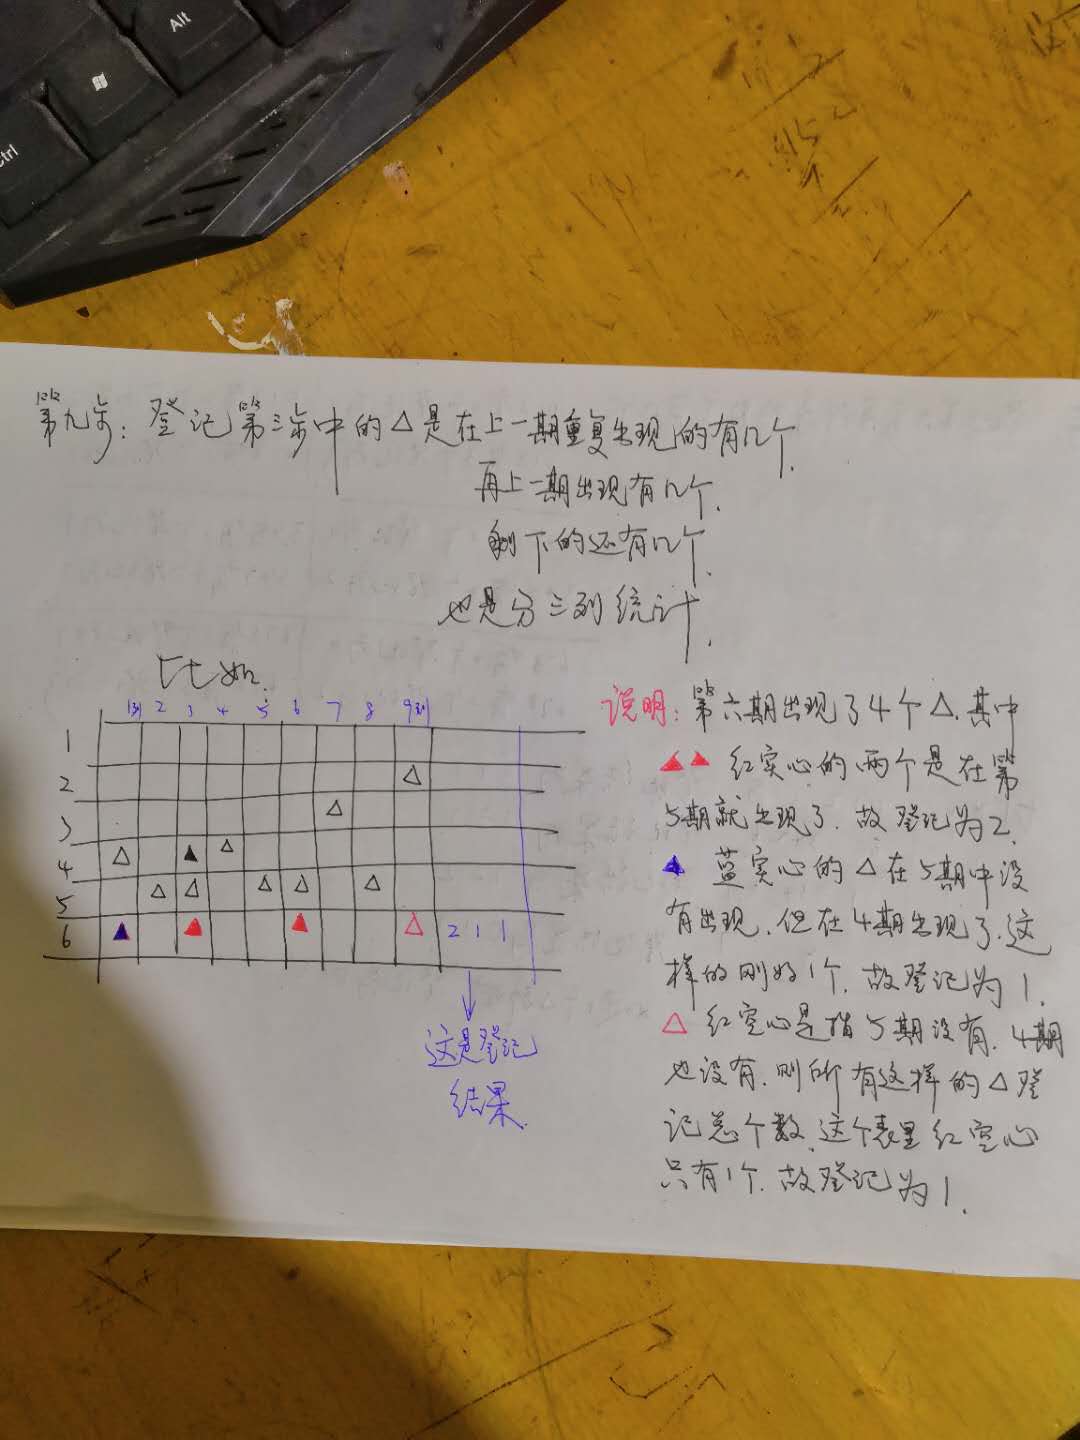 Alt
Ctrl
第九步：登记第三步中的△是在上一期重复出现的有几个.
再上一期出现有几个.
剩下的还有几个.
也是分三列统计.
比如.
1列 2 3 4 5 6 7 8 9列
1
2 △
3 △
4 △ ▲ △
5 △ △ △ △ △
6 ▲ ▲ ▲ △ 2 1 1
这是登记
结果.
说明：第六期出现了4个△.其中
▲▲ 红实心的两个是在第
5期就出现了.故登记为2.
▲ 蓝实心的△在5期中没
有出现.但在4期出现了.这
样的刚好1个.故登记为1.
△ 红空心是指5期没有.4期
也没有.则所有这样的△登
记总个数.这个表里红空心
只有1个.故登记为1.